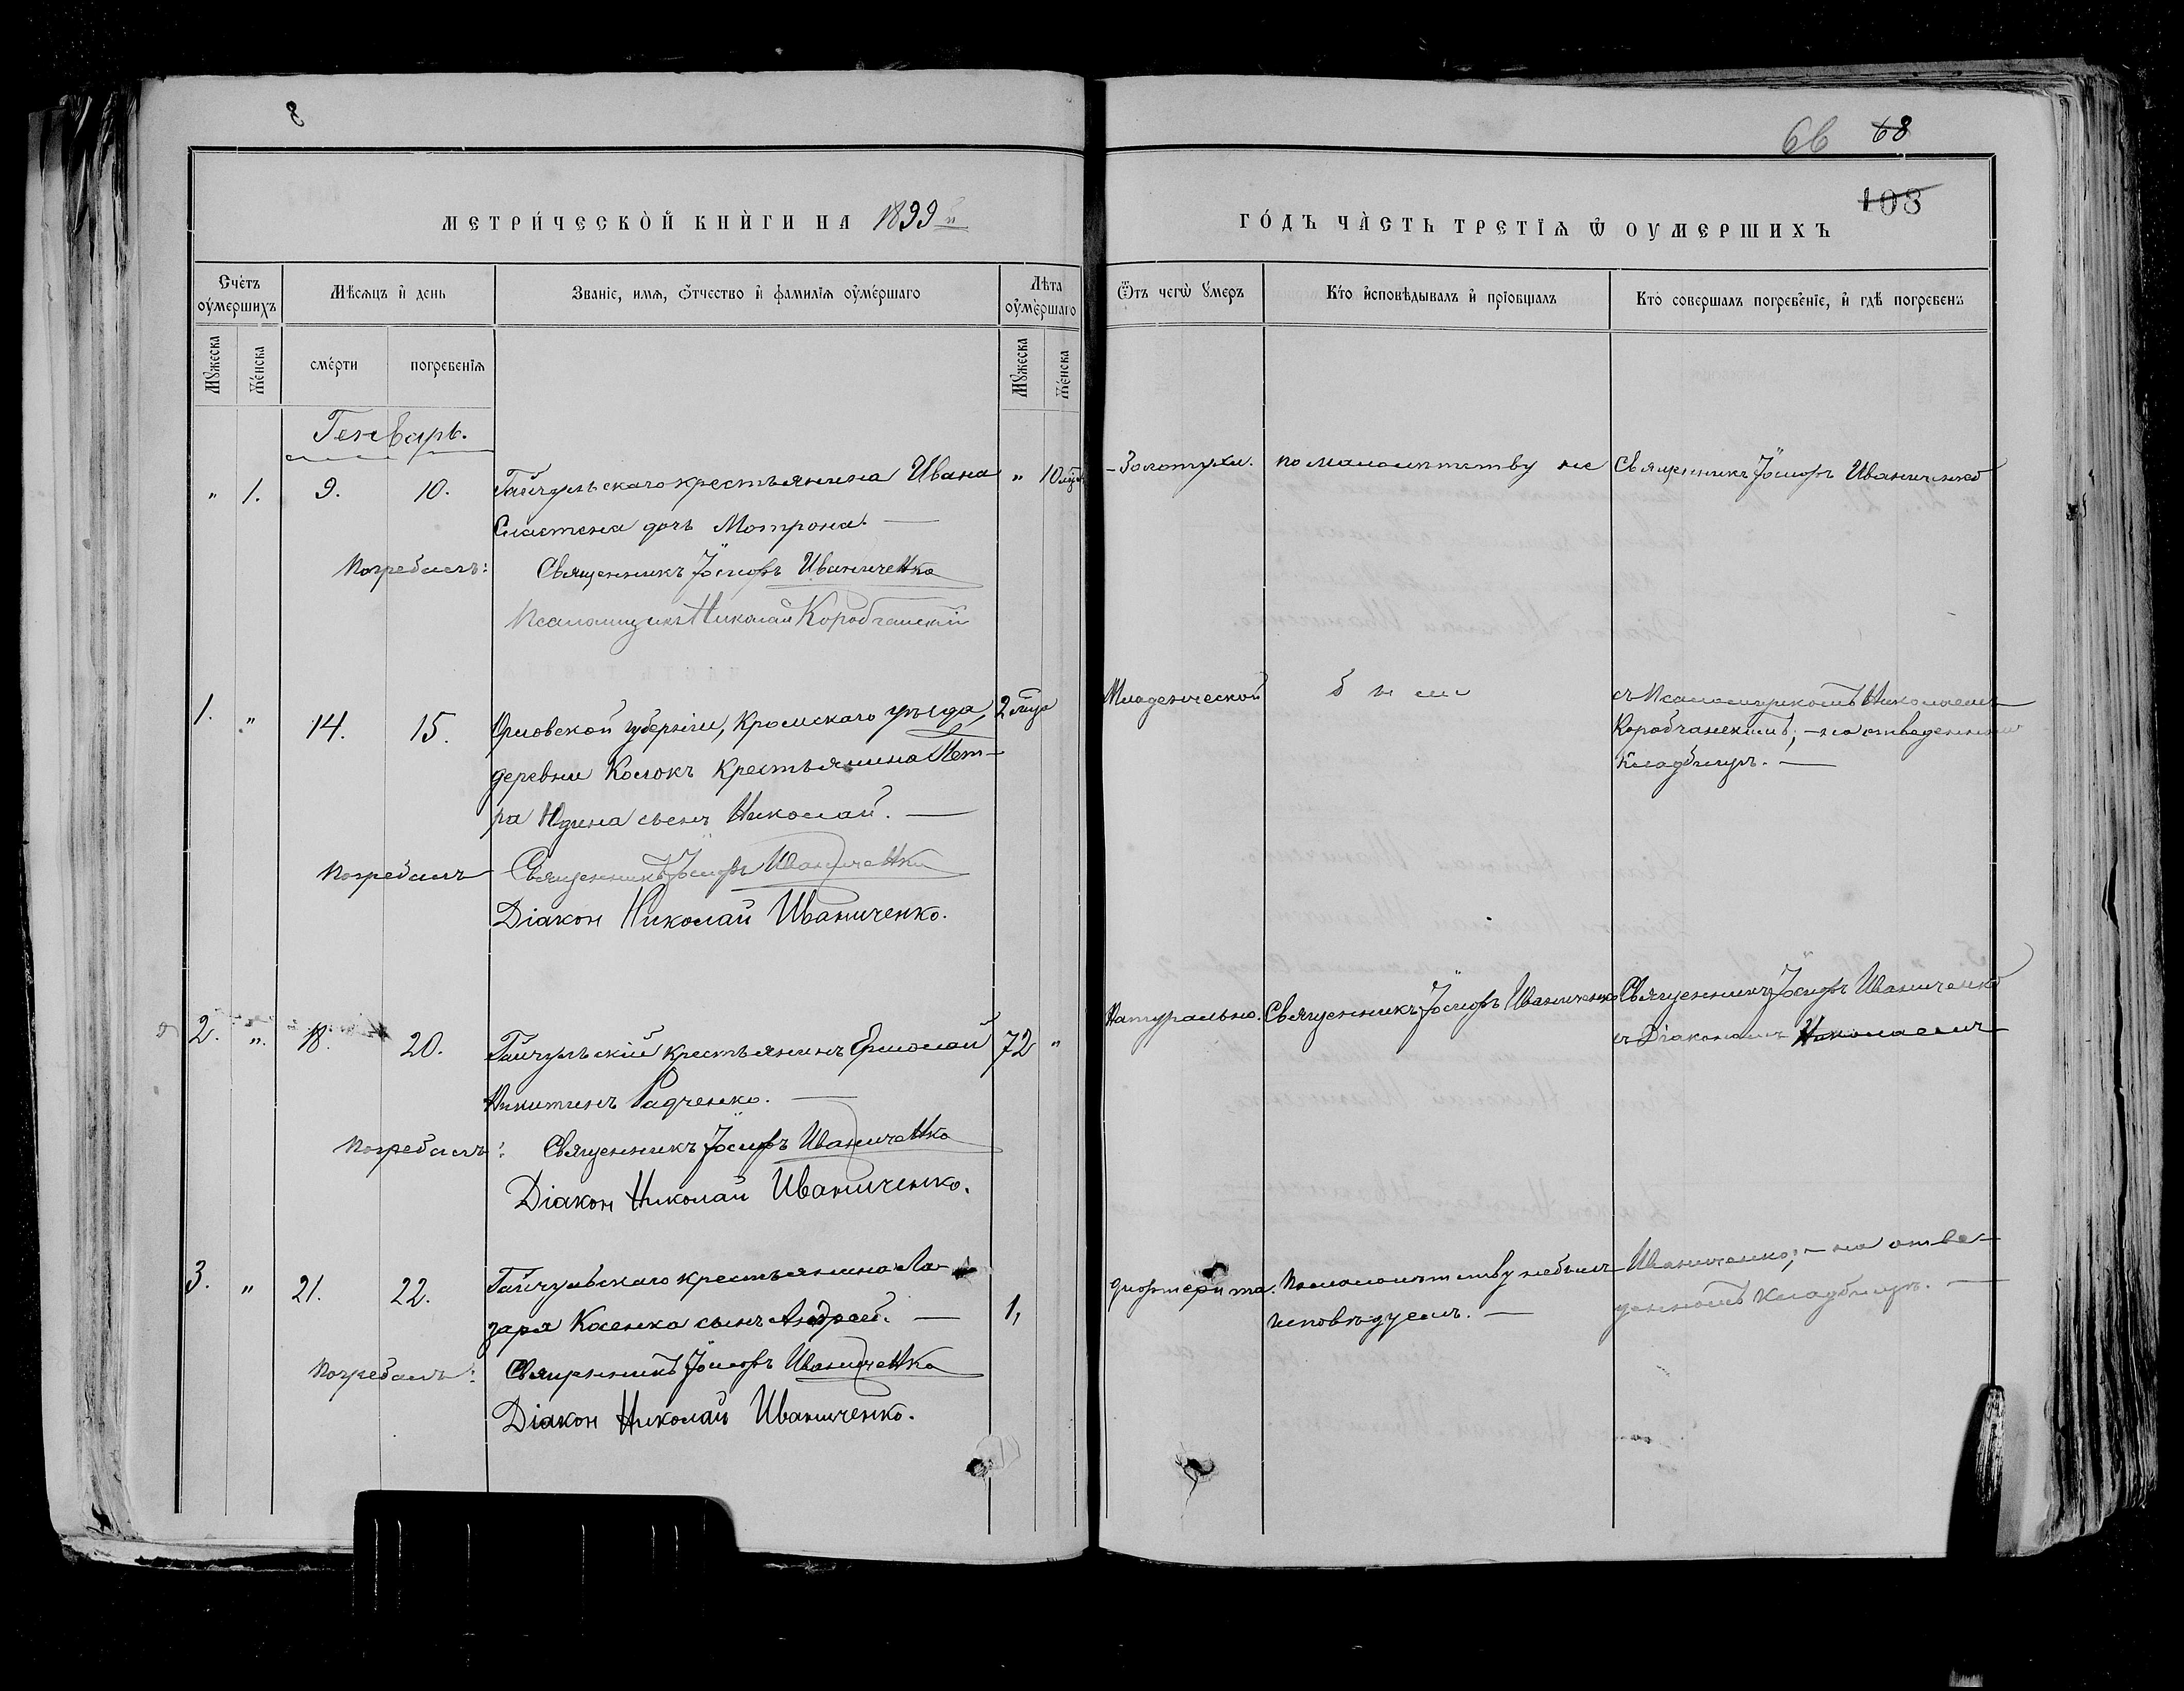 8
66 68
103
МЕТРИ́ЧЕСКОЙ КНИ́ГИ НА 1899й
ГО́ДЪ ЧА́СТЬ ТРЕТІѦ Ѿ ОУМЕРШИХЪ
Сче́тъ оу҆ме́ршихъ
Мѣ́сѧцъ и҆ де́нь
Зва́нїе, и҆́мѧ, ѻ҆́тчество и҆ фамилїѧ оу҆ме́ршаго
Лѣ́та оу҆ме́ршаго
Ѿ чегѡ̀ у҆́меръ
Кто̀ и҆сповѣ́дывалъ и҆ прїобща́лъ
Кто̀ соверша́лъ погребе́нїе, и҆ гдѣ̀ погребе́нъ
Му́жеска
Же́нска
сме́рти
погребе́нїѧ
Му́жеска
Же́нска
Генварь.
" 1. 9. 10. Гайчульскаго крестьянина Ивана " 10 мѣс
Сластена дочь Мотрона. —
Погребалъ: Священникъ Іосифъ Иваниченко
Псаломщикъ Николай Коробчанскій
Золотухи.
по малолѣтству не
Священникъ Іосифъ Иваниченко
1. " 14. 15. Орловской губерніи, Кромскаго уѣзда, 2 мѣс
деревни Колокъ крестьянина Пет-
ра Юдина сынъ Николай. —
Погребалъ Священникъ Іосифъ Иваниченко
Діакон Николай Иваниченко.
Младенческой
былъ
съ Псаломщикомъ Николаемъ
Коробчанскимъ; – на отведенномъ
кладбищѣ. —
2. " 18. 20. Гайчульскій крестьянинъ Ермолай 72 "
Никитинъ Радченко. —
Погребалъ: Священникъ Іосифъ Иваниченко
Діакон Николай Иваниченко.
Натурально.
Священникъ Іосифъ Иваниченко
Священникъ Іосифъ Иваниченко
съ Діакономъ Николаемъ
3. " 21. 22. Гайчульскаго крестьянина Ла-
заря Косенка сынъ Андрей. — 1,
Погребалъ: Священникъ Іосифъ Иваниченко
Діакон Николай Иваниченко.
Дифтерита.
По малолѣтству небылъ
исповѣдуемъ. —
Иваниченко; – на отве-
денномъ кладбищѣ. —